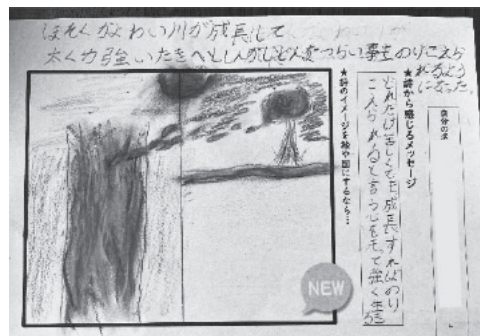 ほそくかよわい川が成長して
太く力強いたきへとしんかしどんなつらい事をのりこえら
れるよう
になった。
★詩から感じるメッセージ
どれだけ苦しくても成長すればのり
こえられると言う心をもって強く生きる
★詩のイメージを絵や図にするなら…
NEW